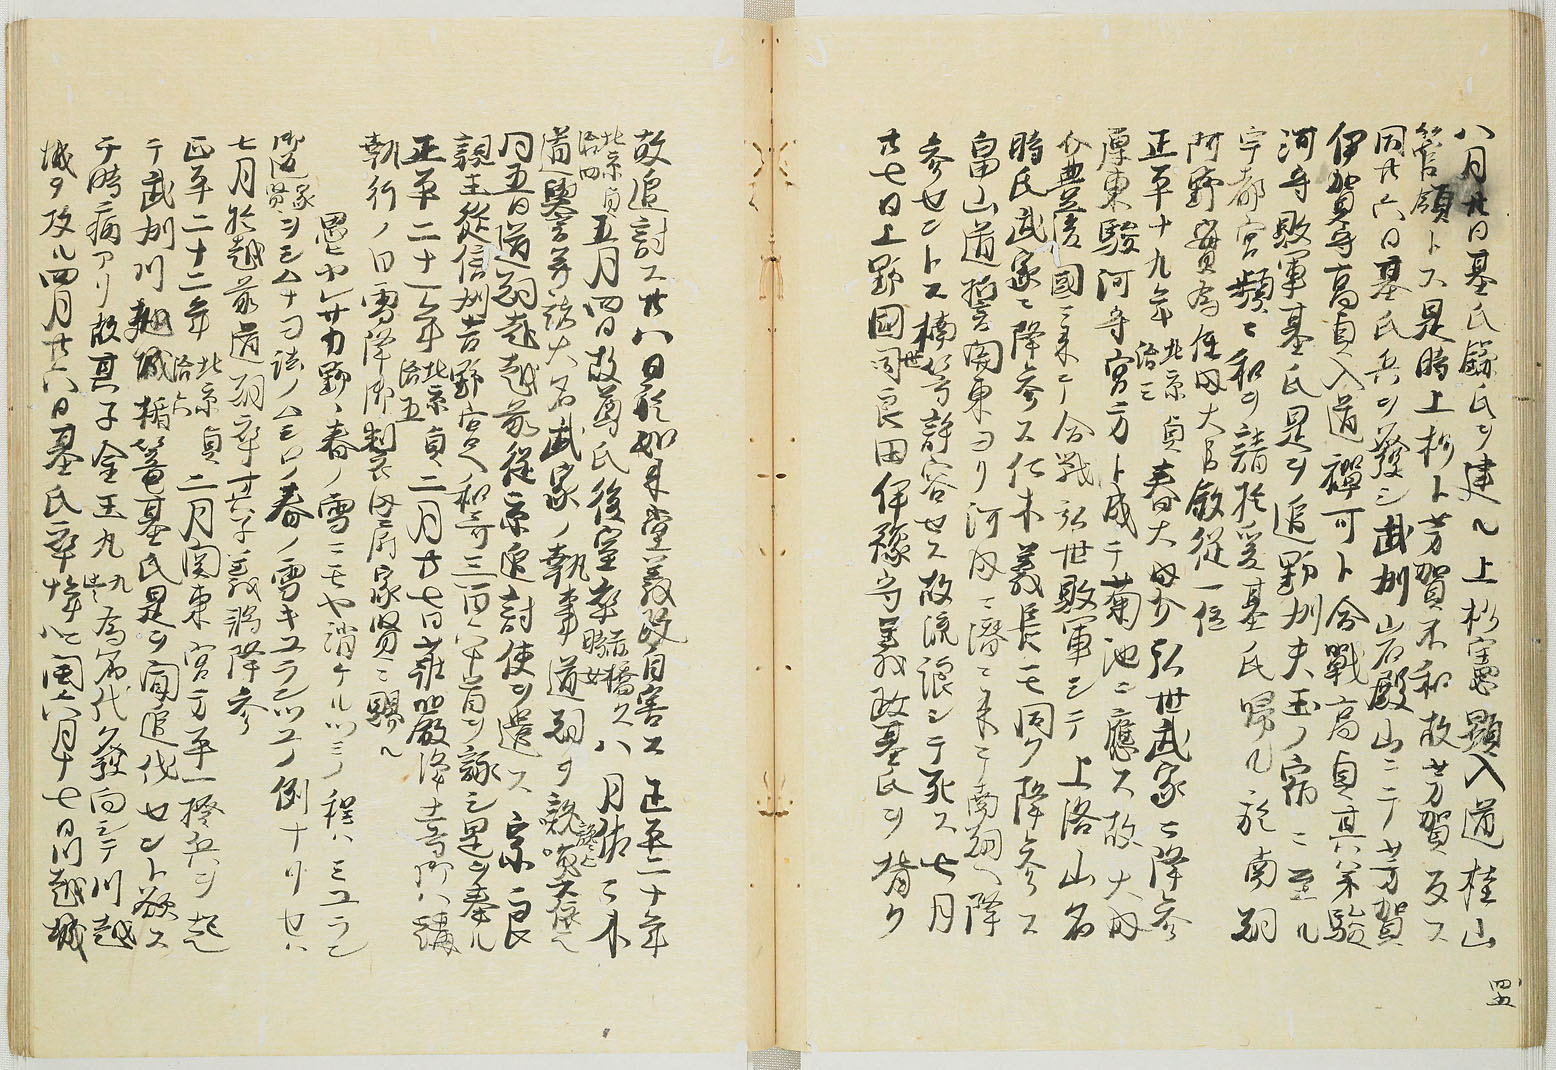 八月廿日基氏鎌氏ヲ建ル上杉憲顕入道桂山
管領トス是時上杉ト芳賀不和故芳賀反ス
同廿六日基氏兵ヲ發シ武州岩殿山ニテ芳賀
伊賀守高貞入道禅可ト合戰高貞其弟駿
河守敗軍基氏是ヲ追野州夫玉ノ宿ニ至ル
宇都宮頻ニ和ヲ請於爰基氏帰ル於南朝
阿野實為任内大臣敘從一位
正平十九年北京貞治三春大内介弘世武家ニ降参
厚東駿河守宮方ト成テ菊池ニ應ス故大内
介豊後國ニ来テ合戰弘世敗軍シテ上洛山名
時氏武家ニ降参ス仁木義長モ同ク降参ス
畠山道誓関東ヨリ河内ニ潜ニ来テ南朝ヘ降
参セントス楠等許容セス故流浪シテ死ス七月
廿七日上野國世良田伊豫守義政基氏ヲ背ク
故追討ス廿八日於如来堂義政自害ス正平二十年
北京貞治四五月四日故尊氏後室卒赤橋久時女八月佐々木
道誉等諸大名武家ノ執事道朝ヲ讒
同五日道朝赴越前従京追討使ヲ遣ス宗良
親王從信州吉野宮ヘ和哥三百六十首ヲ詠シ是ヲ奉ル
正平二十一年北京貞治五二月廿七日
執行ノ日雪降御製衣内府家賢ニ賜ル
思ヒヤレ廿カ野ヽ春ノ雪ニモヤ消ケルツミノ程ハミユラン
御返家賢シミムナヲ法ノムシロノ春ノ雪キユランツユノ例ナリセハ
七月於越前道朝卒其子義将降参
正平二十二年北京貞治六二月関東宮方平一揆兵ヲ起
テ武州川越城楯篭基氏是ヲ聞追伐セント欲ス
于時病アリ故其子金王丸九歳為名代ク發向シテ川越
城ヲ攻ル四月廿六日基氏卒ス閏六月十七日川越城
四五